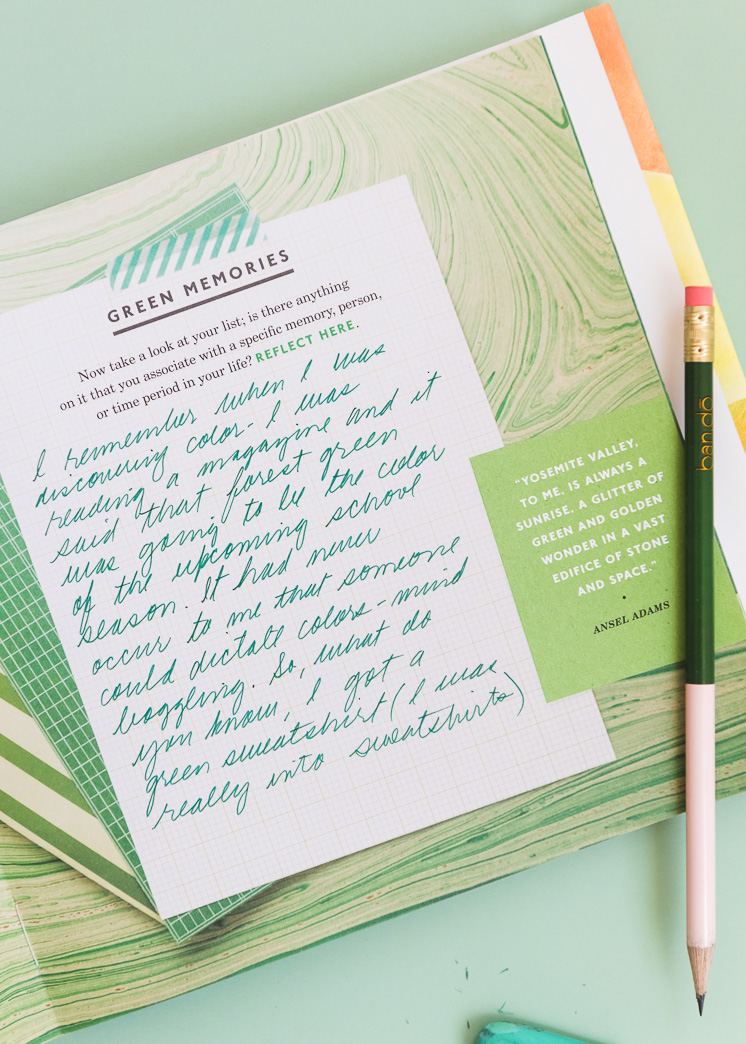 GREEN MEMORIES
Now take a look at your list; is there anything
on it that you associate with a specific memory, person,
or time period in your life? REFLECT HERE.
I remember when I was
discovering color- I was
reading a magazine and it
said that forest green
was going to be the color
of the upcoming school
season. It had never
occur to me that someone
could dictate colors-mind
boggling. So, what do
you know, I got a
green sweatshirt (I was
really into sweatshirts)
"YOSEMITE VALLEY,
TO ME, IS ALWAYS A
SUNRISE, A GLITTER OF
GREEN AND GOLDEN
WONDER IN A VAST
EDIFICE OF STONE
AND SPACE."
ANSEL ADAMS
ban.dō